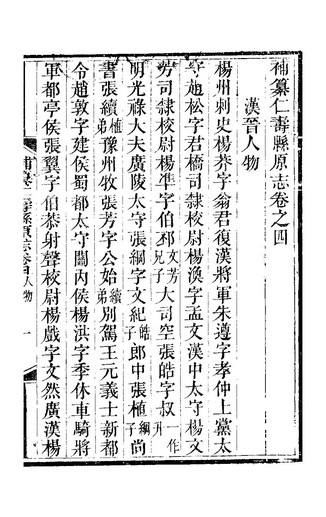 補纂仁壽縣原志卷之四
漢晉人物
楊州刺史楊莽字翁君復漢將軍朱遵字孝仲上黨太
守趙松字君橋司隸校尉楊渙字孟文漢中太守楊文
芳司隸校尉楊準字伯邳文芳兄子大司空張皓字叔一作升
明光祿大夫廣陵太守張綱字文紀皓子郎中張植綱子尚
書張續植弟豫州牧張芳字公始續弟別駕王元義士新都
令趙敦字建侯蜀都太守關內侯楊洪字季休車騎將
軍都亭侯張翼字伯恭射聲校尉楊戲字文然廣漢楊
補纂仁壽縣原志卷四人物 一